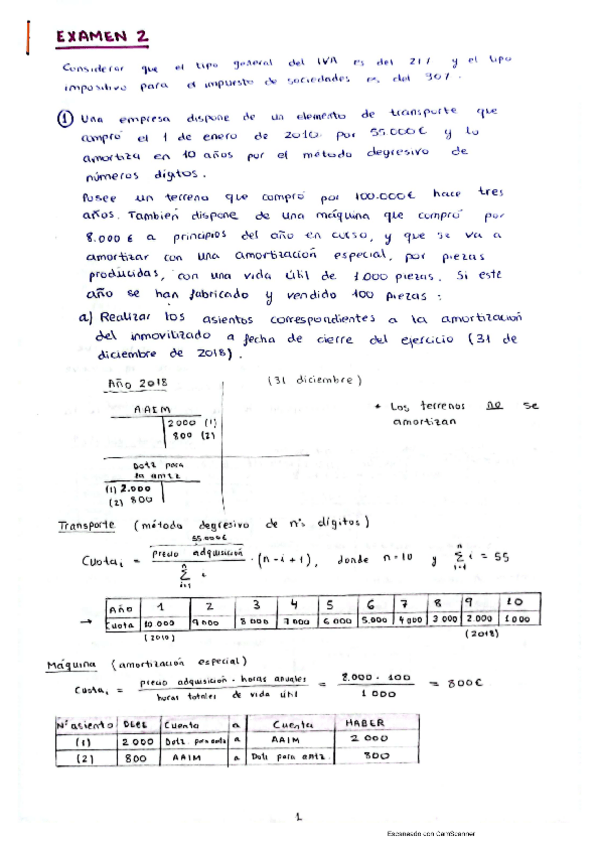 EXAMEN 2
Considerar que el tipo general del IVA es del 21% y el tipo
impositivo para el impuesto de sociedades es del 30%.
① Una empresa dispone de un elemento de transporte que
compró el 1 de enero de 2010 por 55.000€ y lo
amortiza en 10 años por el método degresivo de
números dígitos.
Posee un terreno que compró por 100.000€ hace tres
años. También dispone de una máquina que compró por
8.000 € a principios del año en curso, y que se va a
amortizar con una amortización especial, por piezas
producidas, con una vida útil de 1000 piezas. Si este
año se han fabricado y vendido 100 piezas:
a) Realizar los asientos correspondientes a la amortización
del inmovilizado a fecha de cierre del ejercicio (31 de
diciembre de 2018).
Año 2018 (31 diciembre)
AAIM
2000 (1)
800 (2)
* Los terrenos no se
amortizan
Dotz para
la amtz
(1) 2.000
(2) 800
Transporte (método degresivo de nºs dígitos)
55.000€
Cuota i = precio adquisición / Σ i · (n-i+1), donde n=10 y Σ i = 55
n
i=1
→ Año 1 2 3 4 5 6 7 8 9 10
Cuota 10 000 9 000 8 000 7 000 6 000 5.000 4 000 3 000 2.000 1 000
(2010) (2018)
Máquina (amortización especial)
Cuota i = precio adquisición · horas anuales / horas totales de vida útil = 8.000 · 100 / 1 000 = 800€
Nº asiento DEBE Cuenta a Cuenta HABER
(1) 2 000 Dotz. para amtz a AAIM 2 000
(2) 800 AAIM a Dotz para amtz. 800
1
Escaneado con CamScanner